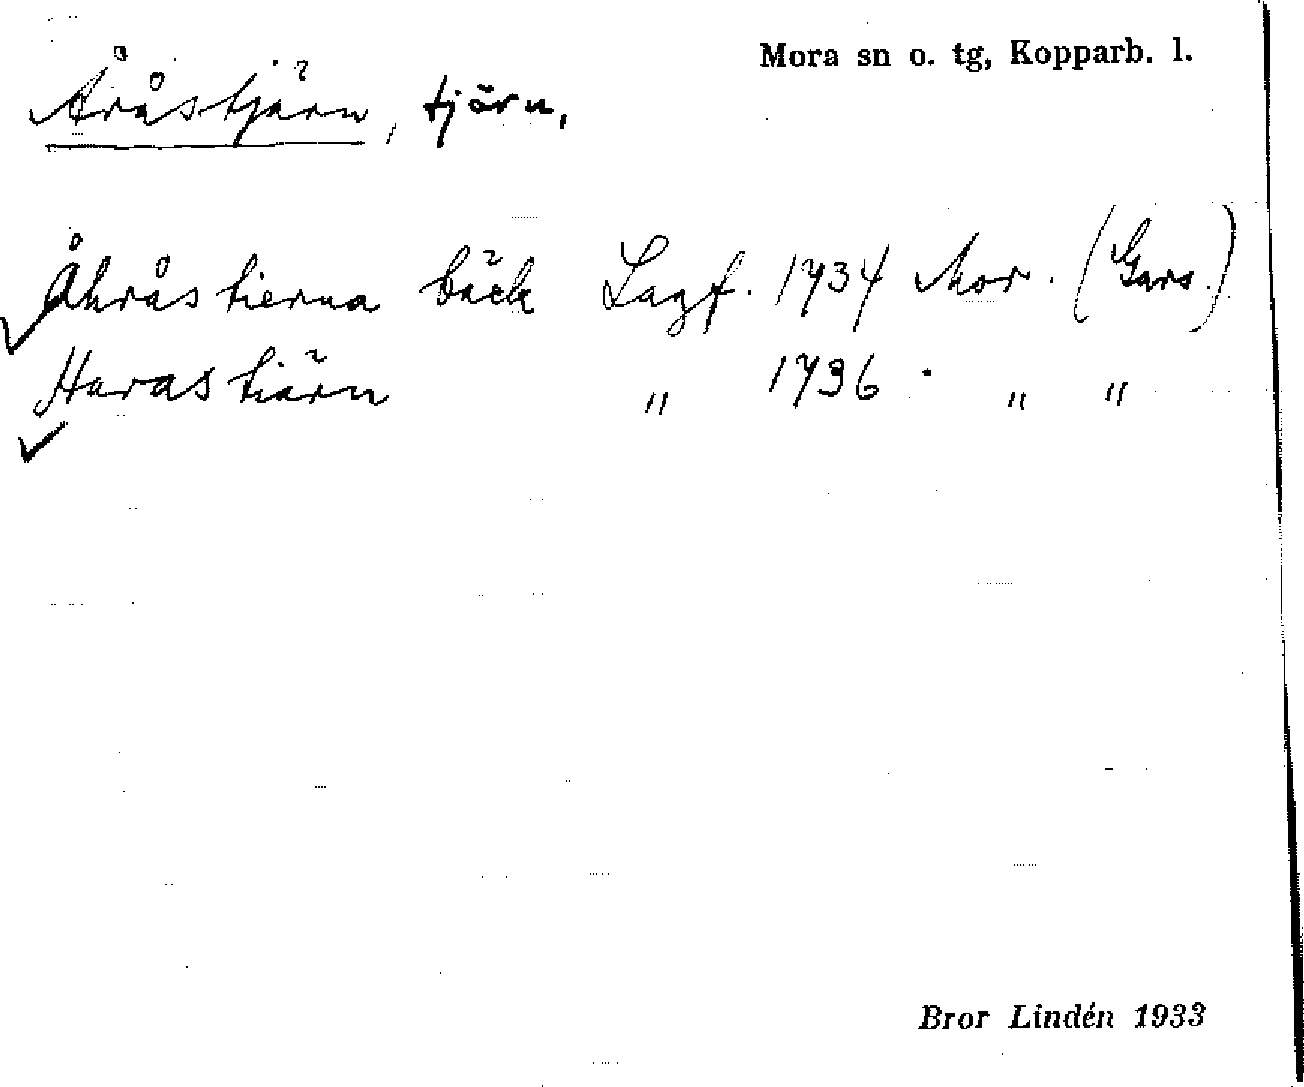 Mora sn o. tg, Kopparb. l.
Åråstjärn, tjärn,
Åhrås tierna bäck Lagf. 1734 Mor. (Gars.)
Haras tiärn " 1736 . " "
Bror Lindén 1933